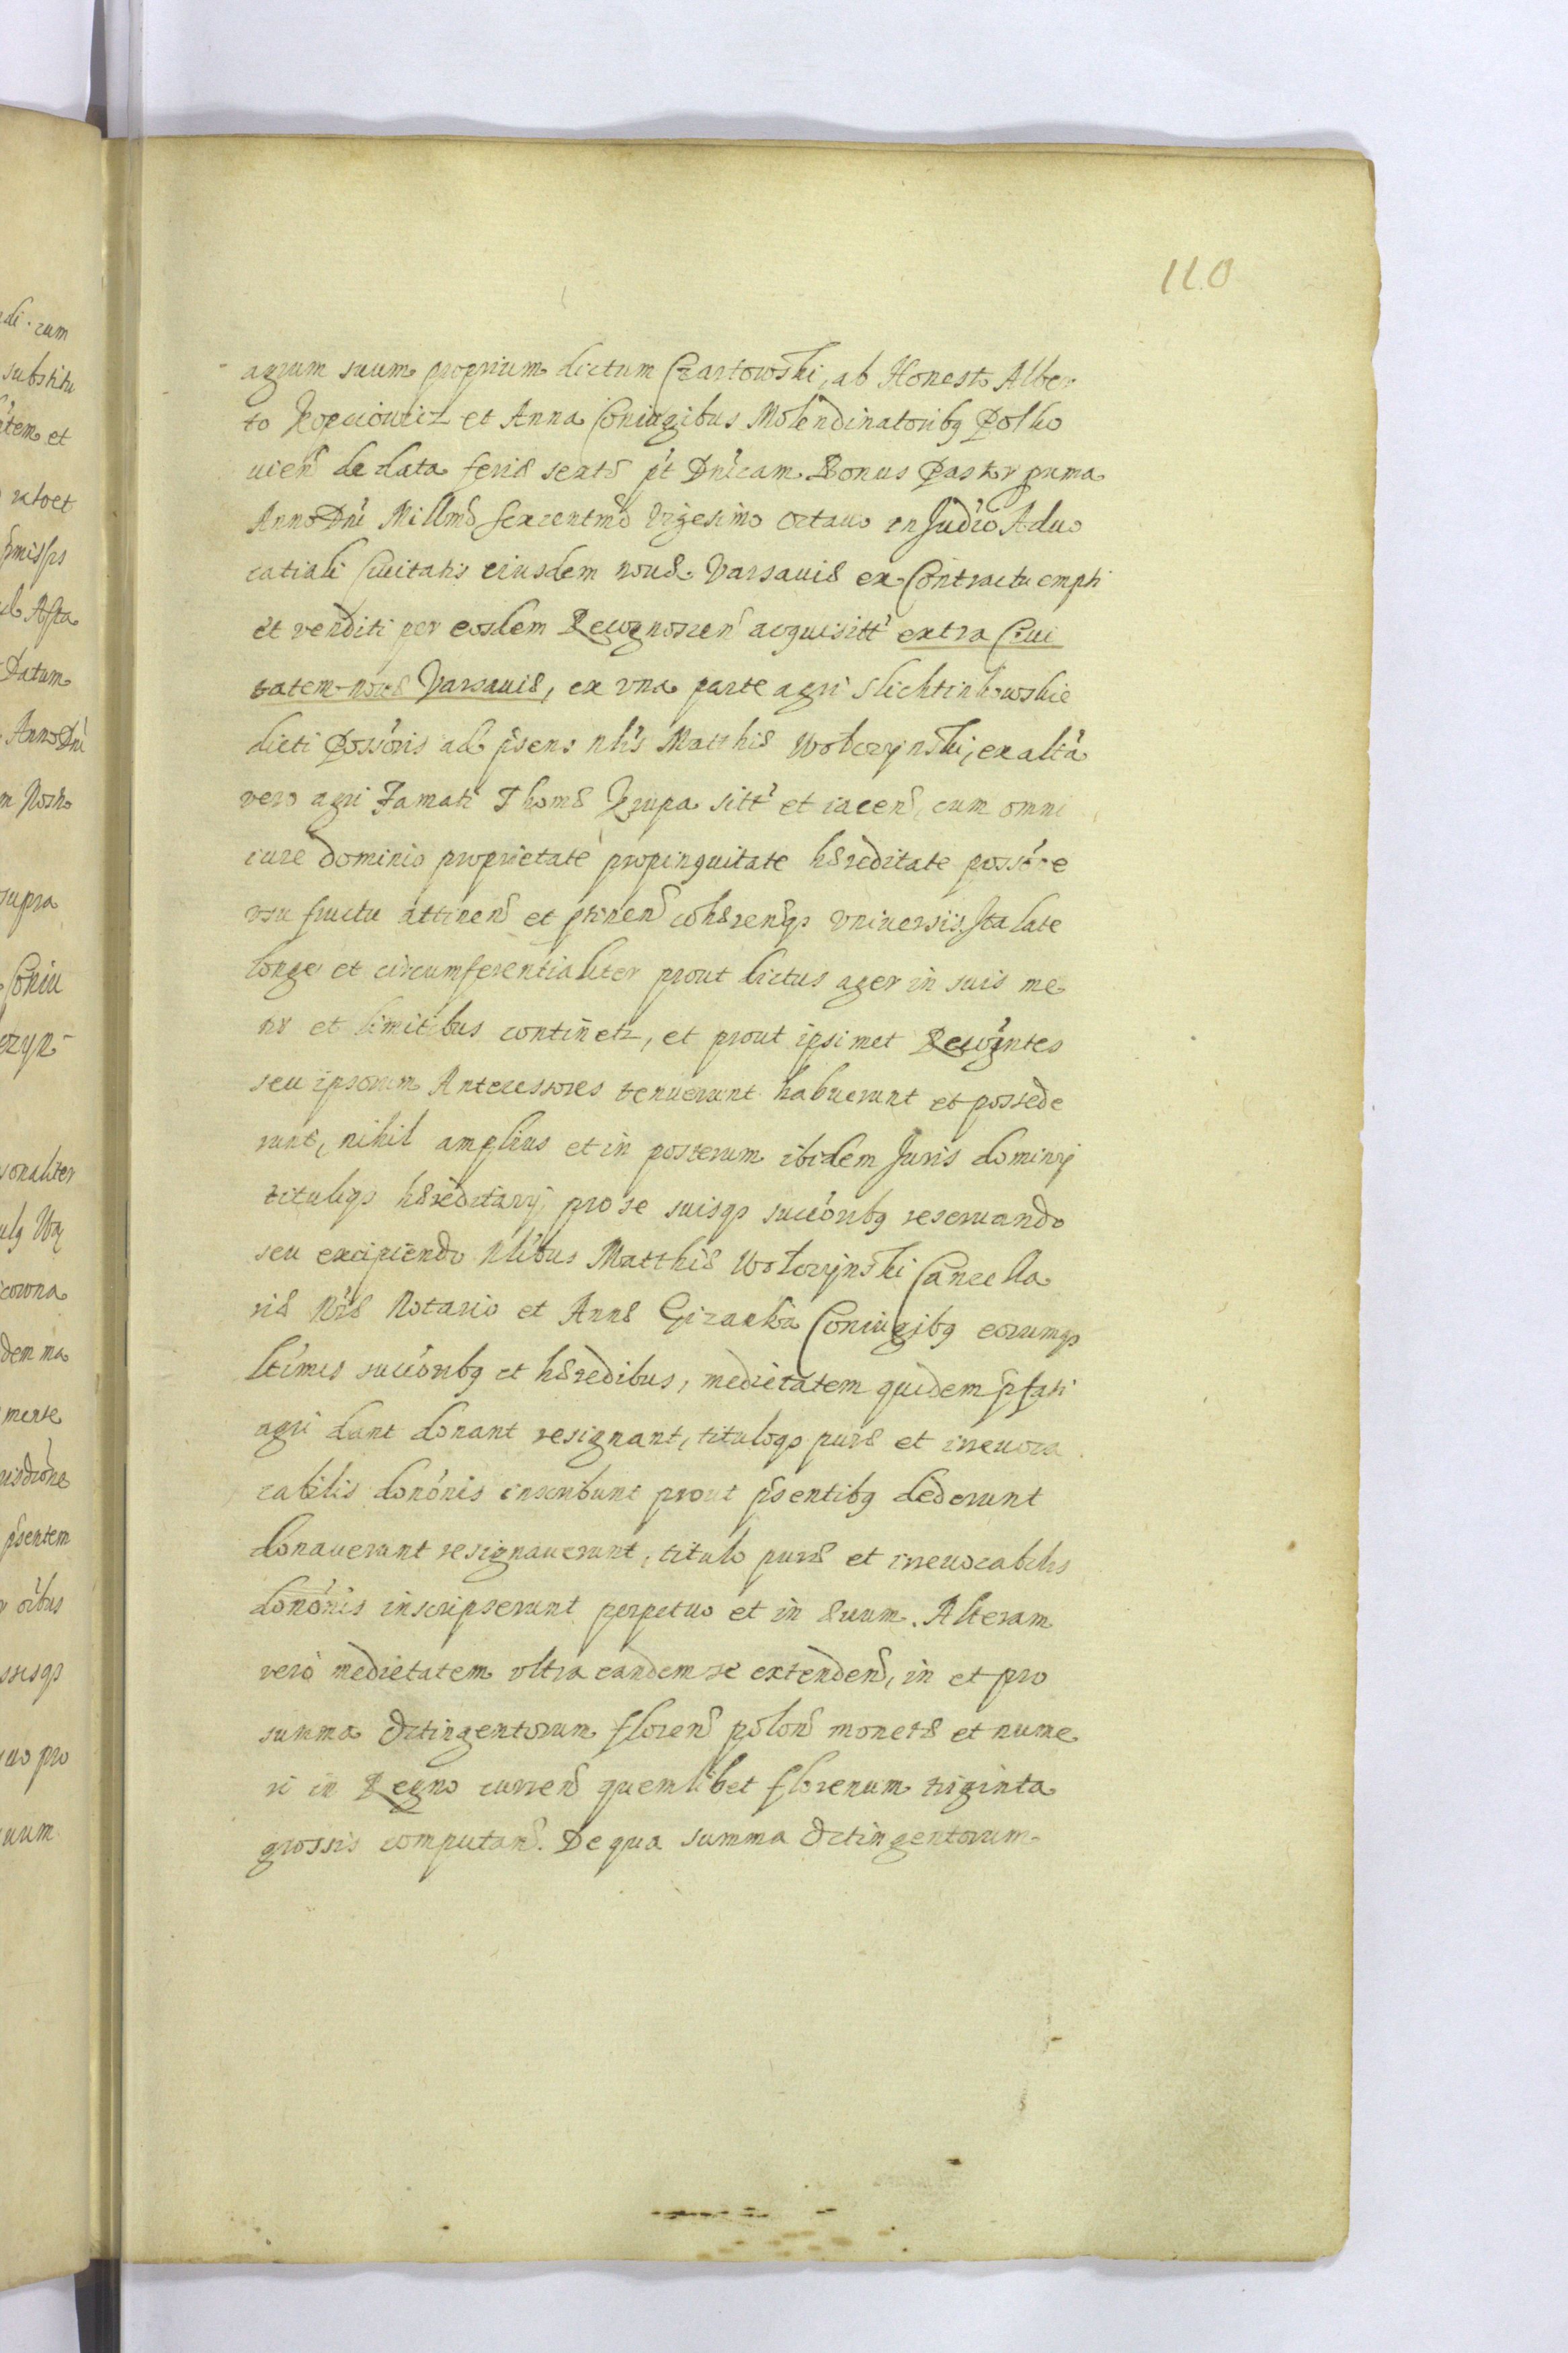 110
agrum suum proprium dictum Czartowski, ab Honesto Alber
to Kopciowicz et Anna Coniugibus Molendinatoribq Polko
uien̄ de data feriæ sextæ pt Dnicam Bonus Pastor pxma
Anno Dni Millmo sexcentmo Vigesimo octauo in Judio Aduo
catiali Ciuitatis eiusdem nouæ Varsauiæ ex Contractu empti
et venditi per eosdem Recognoscen̄ acquisitt extra Ciui
tatem nouæ Varsauiæ, ex vna parte agri Slichtinkowskie
dicti Possoris ad psens Nlis Matthiæ Wolczynski, ex alta
vero agri Famati Thomæ Krupa sitt et iacen̄, cum omni
iure dominio proprietate propinquitate hæreditate possore
vsu fructu attinen̄ et ptinen̄ cohærenqs vniuersis Ita late
longe et circumferentialiter prout dictus ager in suis me
tis et limitibus continetz, et prout ipsimet Recogntes
seu ipsorum Antecessores tenuerunt habuerunt et possede
runt, nihil amplius et in posterum ibidem Juris dominij
tituliqs hæreditarij pro se suisqs succoribq reseruando
seu excipiendo Nlibus Matthiæ Wolczynski Cancella
riæ Nræ Notario et Annæ Gizanka Coniugibq eorumqs
ltimis succoribq et hæredibus, medietatem quidem pfati
agri dant donant resignant, tituloqs puræ et irreuoca
cabilis dononis inscribunt prout psentibq dederunt
donauerunt resignauerunt, titulo puræ et irreuocabilis
dononis inscripserunt perpetuo et in æuum. Alteram
vero medietatem vltra eandem se extenden̄, in et pro
summa Octingentorum floren̄ polon̄ monetæ et nume
ri in Regno curren̄ quemlibet florenum triginta
grossis computan̄. De qua summa Octingentorum